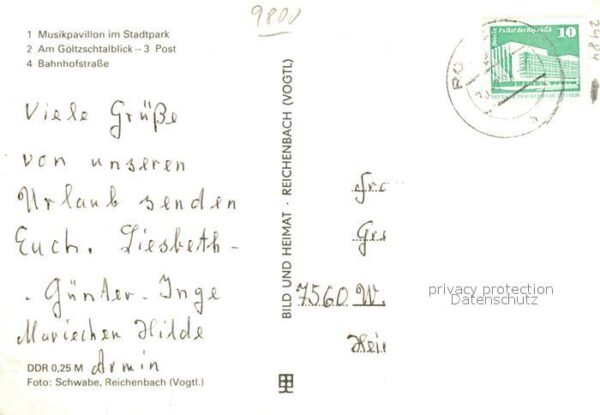 9800
1 Musikpavillon im Stadtpark
2 Am Göltzschtalblick – 3 Post
4 Bahnhofstraße
Viele Grüße
von unseren
Urlaub senden
Euch. Liesbeth -
- Günter - Inge
Mariechen Hilde
Armin
DDR 0,25 M
Foto: Schwabe, Reichenbach (Vogtl.)
BILD UND HEIMAT · REICHENBACH (VOGTL)
Palast der Republik
10
RO
2484
7560 W.
privacy protection
Datenschutz